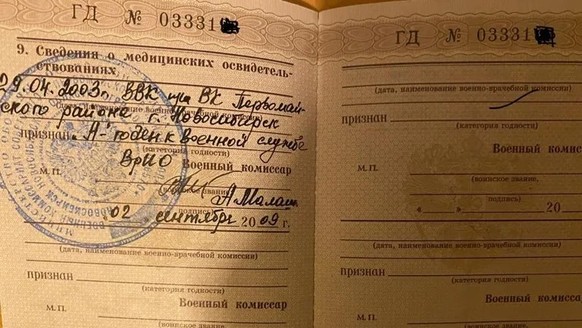 ГД № 03331
9. Сведения о медицинских освидетель-
ствованиях
29.04.2003г. ВВК при ВК Первомай-
ского района г. Новосибирск
признан А-годен к военной службе
(категория годности)
ВрИО Военный комиссар
М.П.
А Малаш
02 сентября 2009 г.
(дата, наименование военно-врачебной комиссии)
признан
(категория годности)
Военный комиссар
М.П.
(воинское звание,
ГД № 03331
(дата, наименование военно-врачебной комиссии)
признан
(категория годности)
Военный комиссар
М.П.
(воинское звание,
подпись)
« » 20
(дата, наименование военно-врачебной комиссии)
признан
(категория годности)
Военный комиссар
М.П.
(воинское звание,